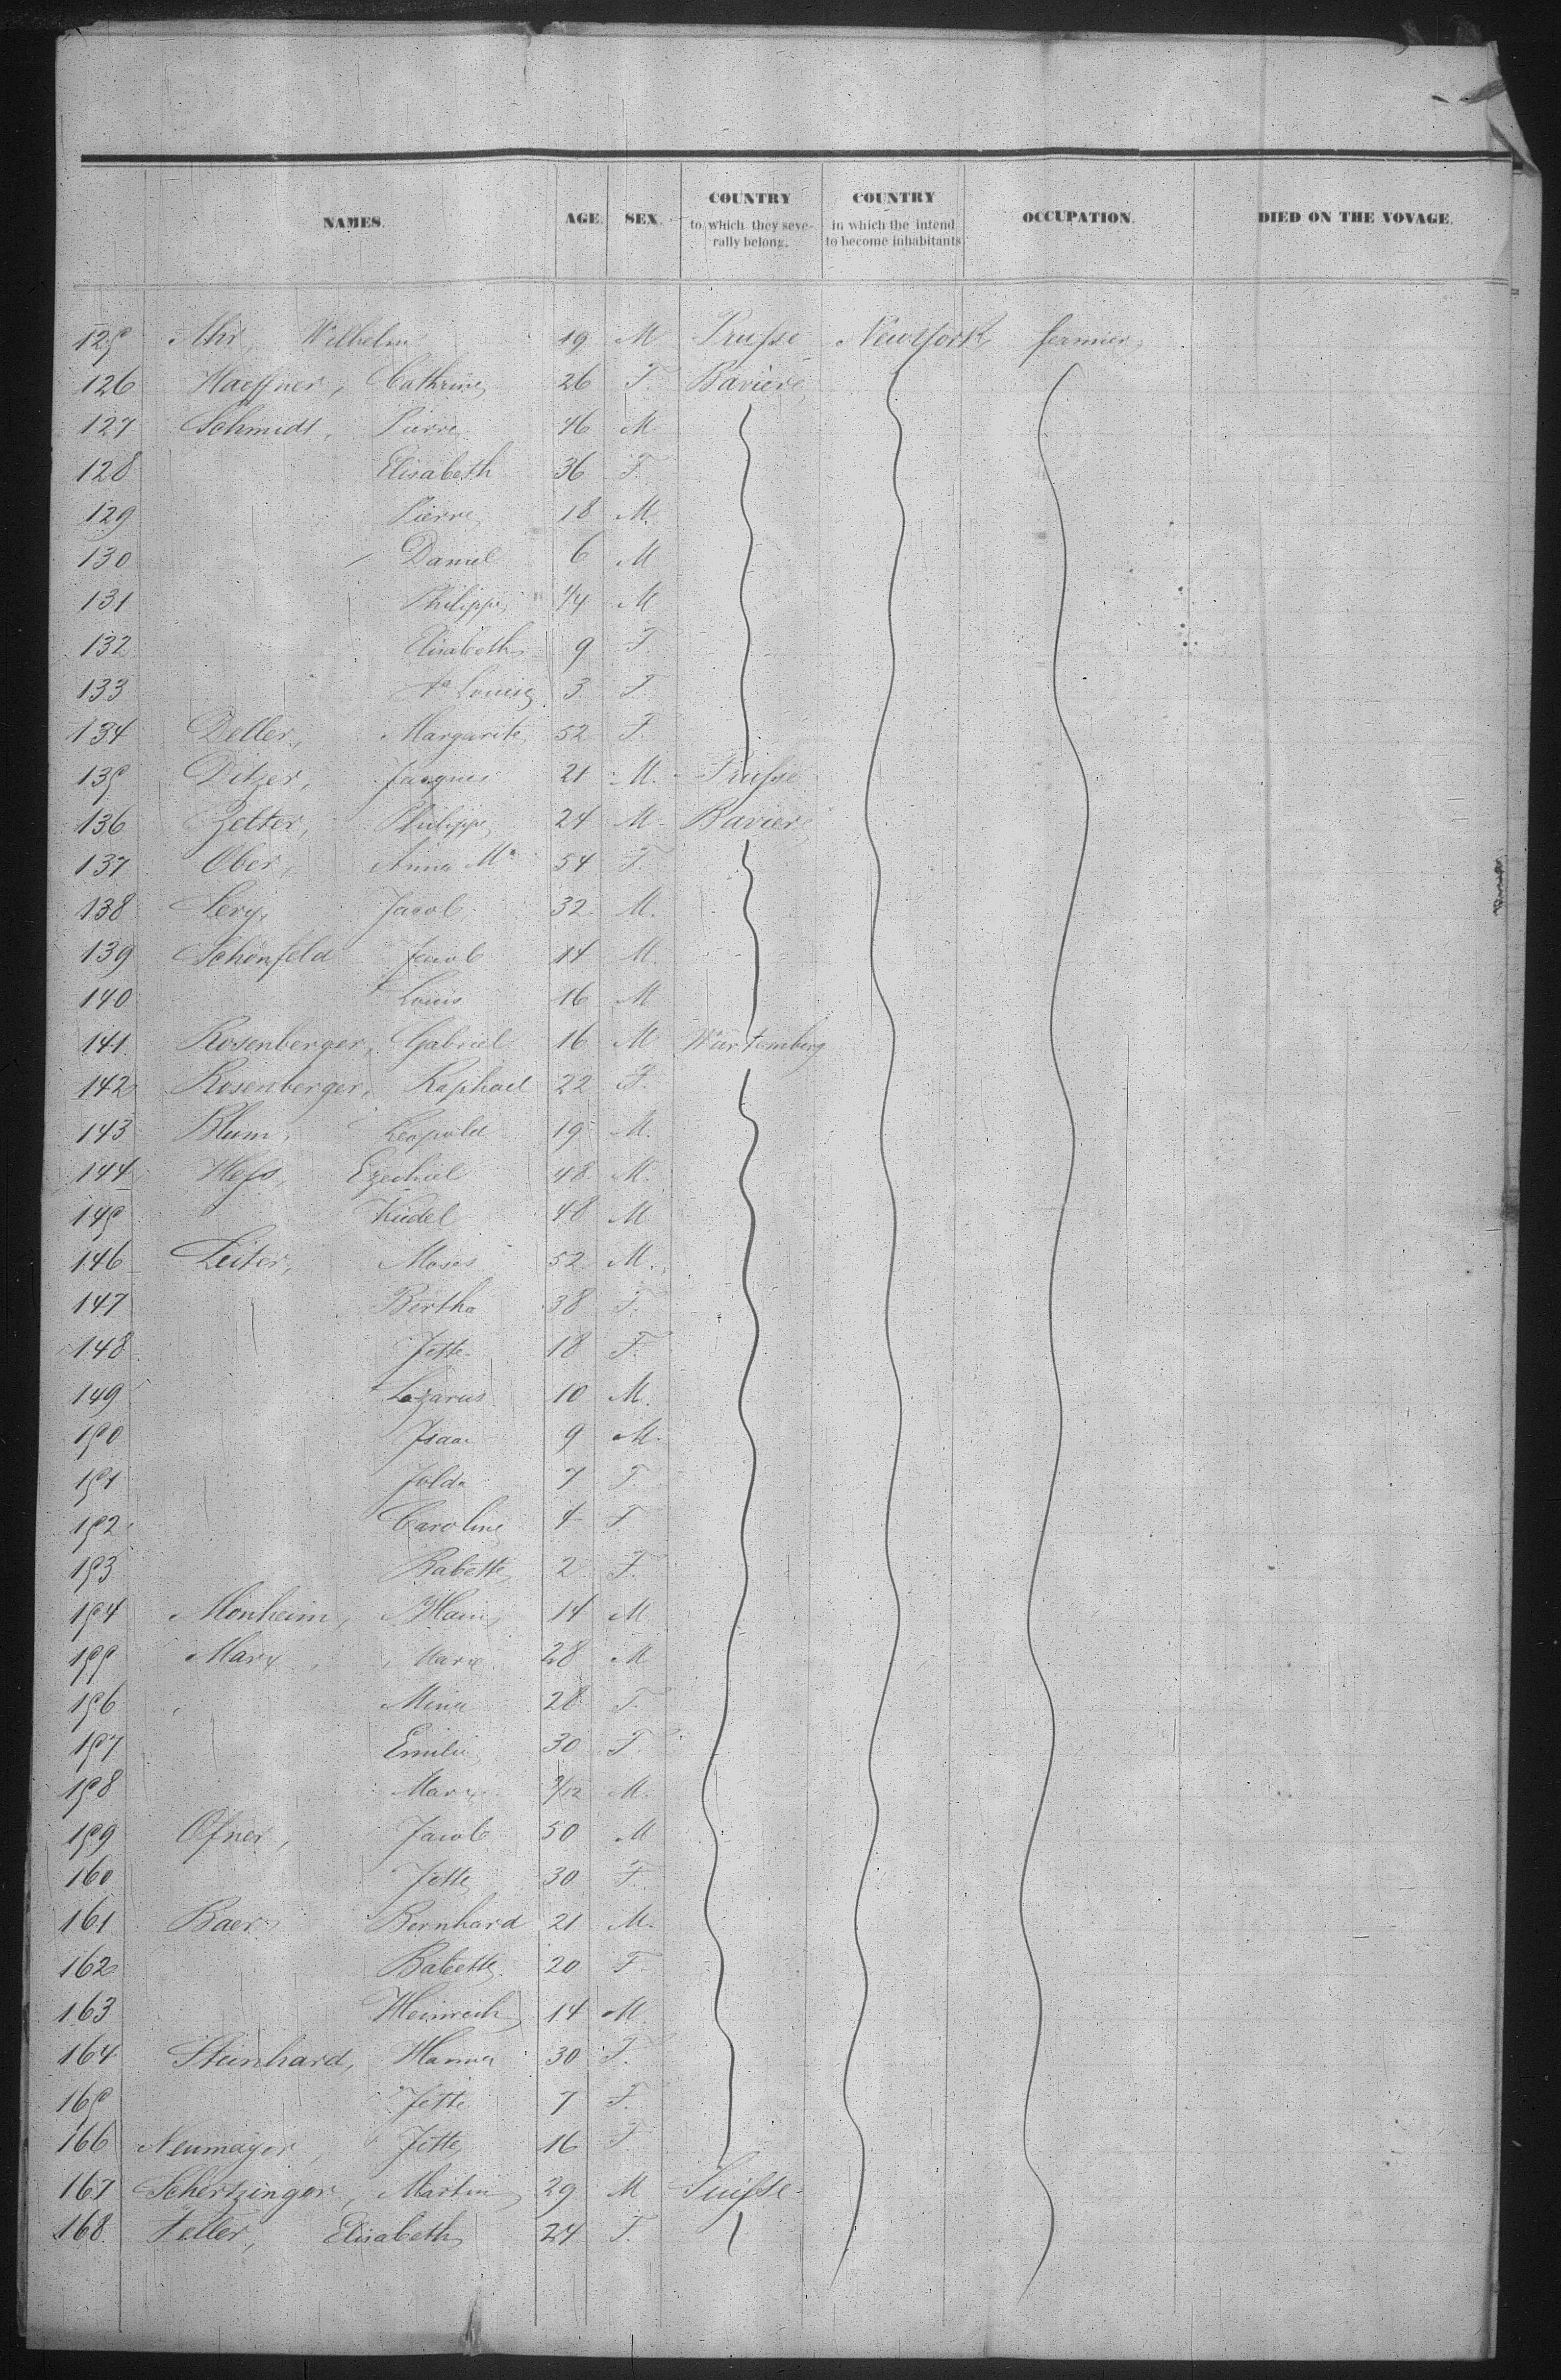 NAMES. AGE. SEX. COUNTRY to which they severally belong. COUNTRY in which the intend to become inhabitants OCCUPATION. DIED ON THE VOVAGE.
125 Ahr, Wilhelm 19 M Prusse New York fermier
126 Haeffner, Cathrine 26 F. Baviere
127 Schmidt, Pierre 46 M
128 Elisabeth 36 F.
129 Pierre 18 M.
130 Daniel 6 M
131 Philippe 1/4 M
132 Elisabeth 9 F.
133 Louise 3 F.
134 Deller, Margarite 52 F.
135 Ditzer, Jacques 21 M. Prusse
136 Zetter, Philippe 24 M. Baviere
137 Ober, Anna Ma 54 F.
138 Levy, Jacob 32 M.
139 Schönfeld Jacob 14 M.
140 Louis 16 M
141. Rosenberger, Gabriel 16 M Wurtemberg
142 Rosenberger, Raphael 22 F.
143 Blum, Leopold 19 M.
144 Hess, Ezechiel 48 M.
145 48 M
146 Leiter, Moses 52 M.
147 Bertha 38 F.
148 Jette 18 F.
149 Lazarus 10 M.
150 Isaac 9 M.
151 7 F.
152 Caroline 4 F
153 Babette 2 F.
154 Monheim, 14 M
155 Marx, Marx 28 M
156 Mina 28 F.
157 Emilie 30 F.
158 Marx /12 M.
159 Ofner, Jacob 50 M
160 Jette 30 F.
161 Baer, Bernhard 21 M.
162 Babette 20 F.
163 Heinrich 14 M.
164 Steinhard, Hanna 30 F.
165 Jette 7 F.
166 Neumayer, Jette 16 F
167 Schertzinger, Martin 29 M Suisse
168. Feller, Elisabeth 24 F.